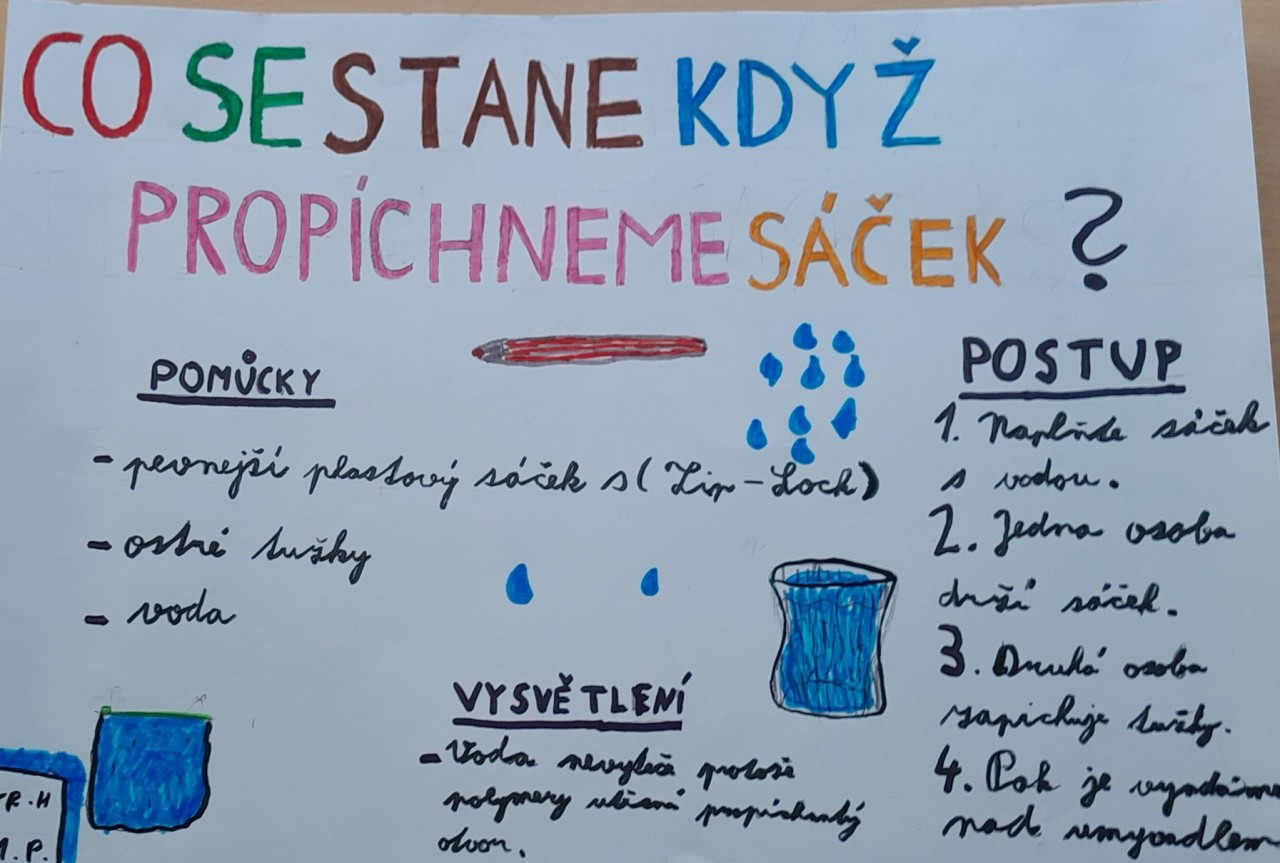 CO SE STANE KDYŽ
PROPÍCHNEME SÁČEK ?
POMŮCKY
- pevnější plastový sáček s (Zip-Lock)
- ostré tužky
- voda
VYSVĚTLENÍ
- Voda nevyteče protože
polymery utěsní propíchnutý
otvor.
POSTUP
1. Naplňte sáček
s vodou.
2. Jedna osoba
drží sáček.
3. Druhá osoba
zapichuje tužky.
4. Pak je vyndáme
nad umyvadlem
R.H
P.